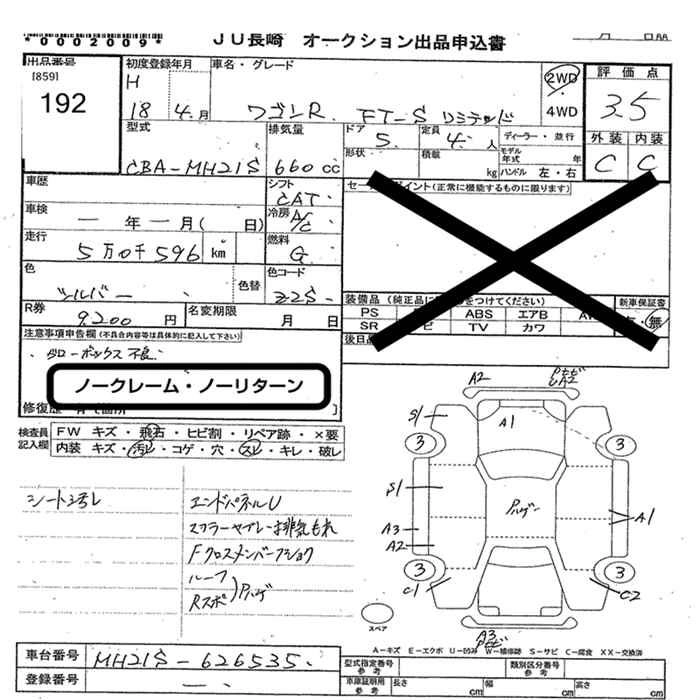 *0002009*
JU長崎 オークション出品申込書
出品番号
[859]
192
初度登録年月
H
18 4月
車名・グレード
ワゴンR FT-S リミテッド
2WD
・
4WD
評価点
3.5
型式
CBA-MH21S
排気量
660cc
ドア
5
定員
4人
形状
積載
kg
ディーラー・並行
モデル年式 年
ハンドル 左・右
外装 内装
C C
車歴
シフト
CAT
セールスポイント(正常に機能するものに限ります)
車検
―年―月( 日)
冷房
A/C
走行
5万0千596 km
燃料
G
色
シルバー
色替
色コード
Z2S
装備品(純正品に をつけてください)
PS ABS エアB
SR TV カワ
新車保証書
・無
R券
9200円
名変期限
月 日
後日品
注意事項申告欄(不具合内容等は具体的に記入して下さい)
グローボックス不良
ノークレーム・ノーリターン
修復歴
検査員記入欄
FW キズ・飛石・ヒビ割・リペア跡・×要
内装 キズ・汚レ・コゲ・穴・スレ・キレ・破レ
シート汚レ
エンドパネルU
マフラーサブレー排気もれ
Fクロスメンバープショク
ルーフ
Rスポ
Pハゲ
A2
A2
S1
A1
3
3
S1
Pハゲ
A1
A3
A2
3
3
C1
C2
A3
スペア
A-キズ E-エクボ U-凹み W-補修跡 S-サビ C-腐食 XX-交換済
車台番号
MH21S-626535
登録番号
―
型式指定番号
参考
類別区分番号
参考
車庫証明用
参考
長さ
cm
幅
cm
高さ
cm